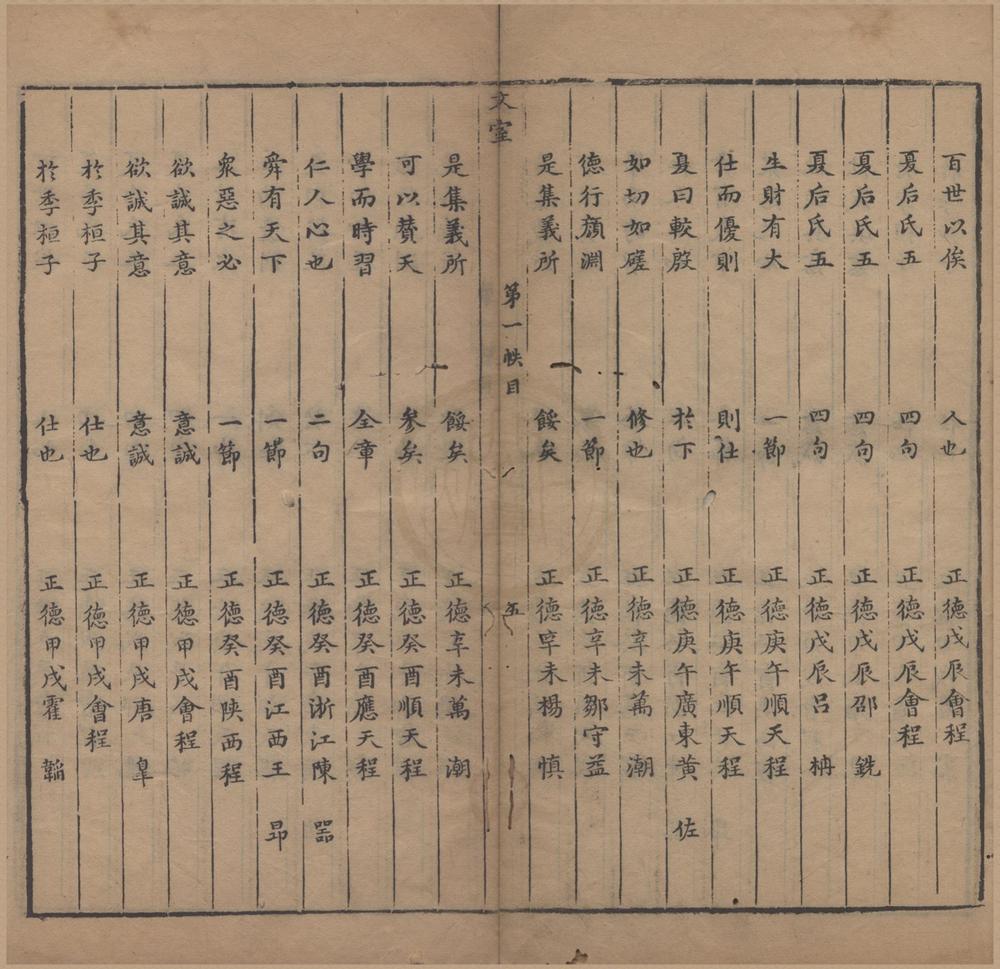 百世以俟 人也 正德戊辰會程
夏后氏五 四句 正德戊辰會程
夏后氏五 四句 正德戊辰邵 銑
夏后氏五 四句 正德戊辰呂 柟
生財有大 一節 正德庚午順天程
仕而優則 則仕 正德庚午順天程
夏曰較殷 於下 正德庚午廣東黄 佐
如切如磋 修也 正德辛未萬 潮
德行顏淵 一節 正德辛未鄒守益
是集義所 餒矣 正德辛未楊 慎
文室 第一帙目 五
是集義所 餒矣 正德辛未萬 潮
可以贊天 參矣 正德癸酉順天程
學而時習 全章 正德癸酉應天程
仁人心也 二句 正德癸酉浙江陳 器
舜有天下 一節 正德癸酉江西王 昂
衆惡之必 一節 正德癸酉陝西程
欲誠其意 意誠 正德甲戌會程
欲誠其意 意誠 正德甲戌唐 皐
於季桓子 仕也 正德甲戌會程
於季桓子 仕也 正德甲戌霍 韜